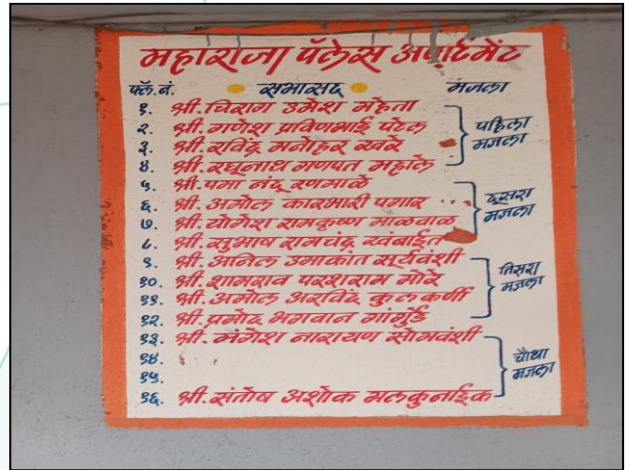 महाराजा पॅलेस अपार्टमेंट
फ्लॅ.नं. सभासद मजला
१. श्री. चिराग उमेश मेहता
२. श्री. गणेश प्रविणभाई पटेल
३. श्री. रविंद्र मनोहर खरे
४. श्री. रघुनाथ गणपत महाले
पहिला
मजला
५. श्री. पमा नंदू रणमाळे
६. श्री. अमोल कारभारी पगार
७. श्री. योगेश रामकृष्ण माळवाळ
८. श्री. सुभाष रामचंद्र खंबाईत
दूसरा
मजला
९. श्री. अनिल उमाकांत सूर्यवंशी
१०. श्री. शामराव परशराम मोरे
११. श्री. अमोल अरविंद कुलकर्णी
१२. श्री. प्रमोद भगवान गांगुर्डे
तिसरा
मजला
१३. श्री. मंगेश नारायण सोमवंशी
१४.
१५.
१६. श्री. संतोष अशोक मलकुनाईक
चौथा
मजला